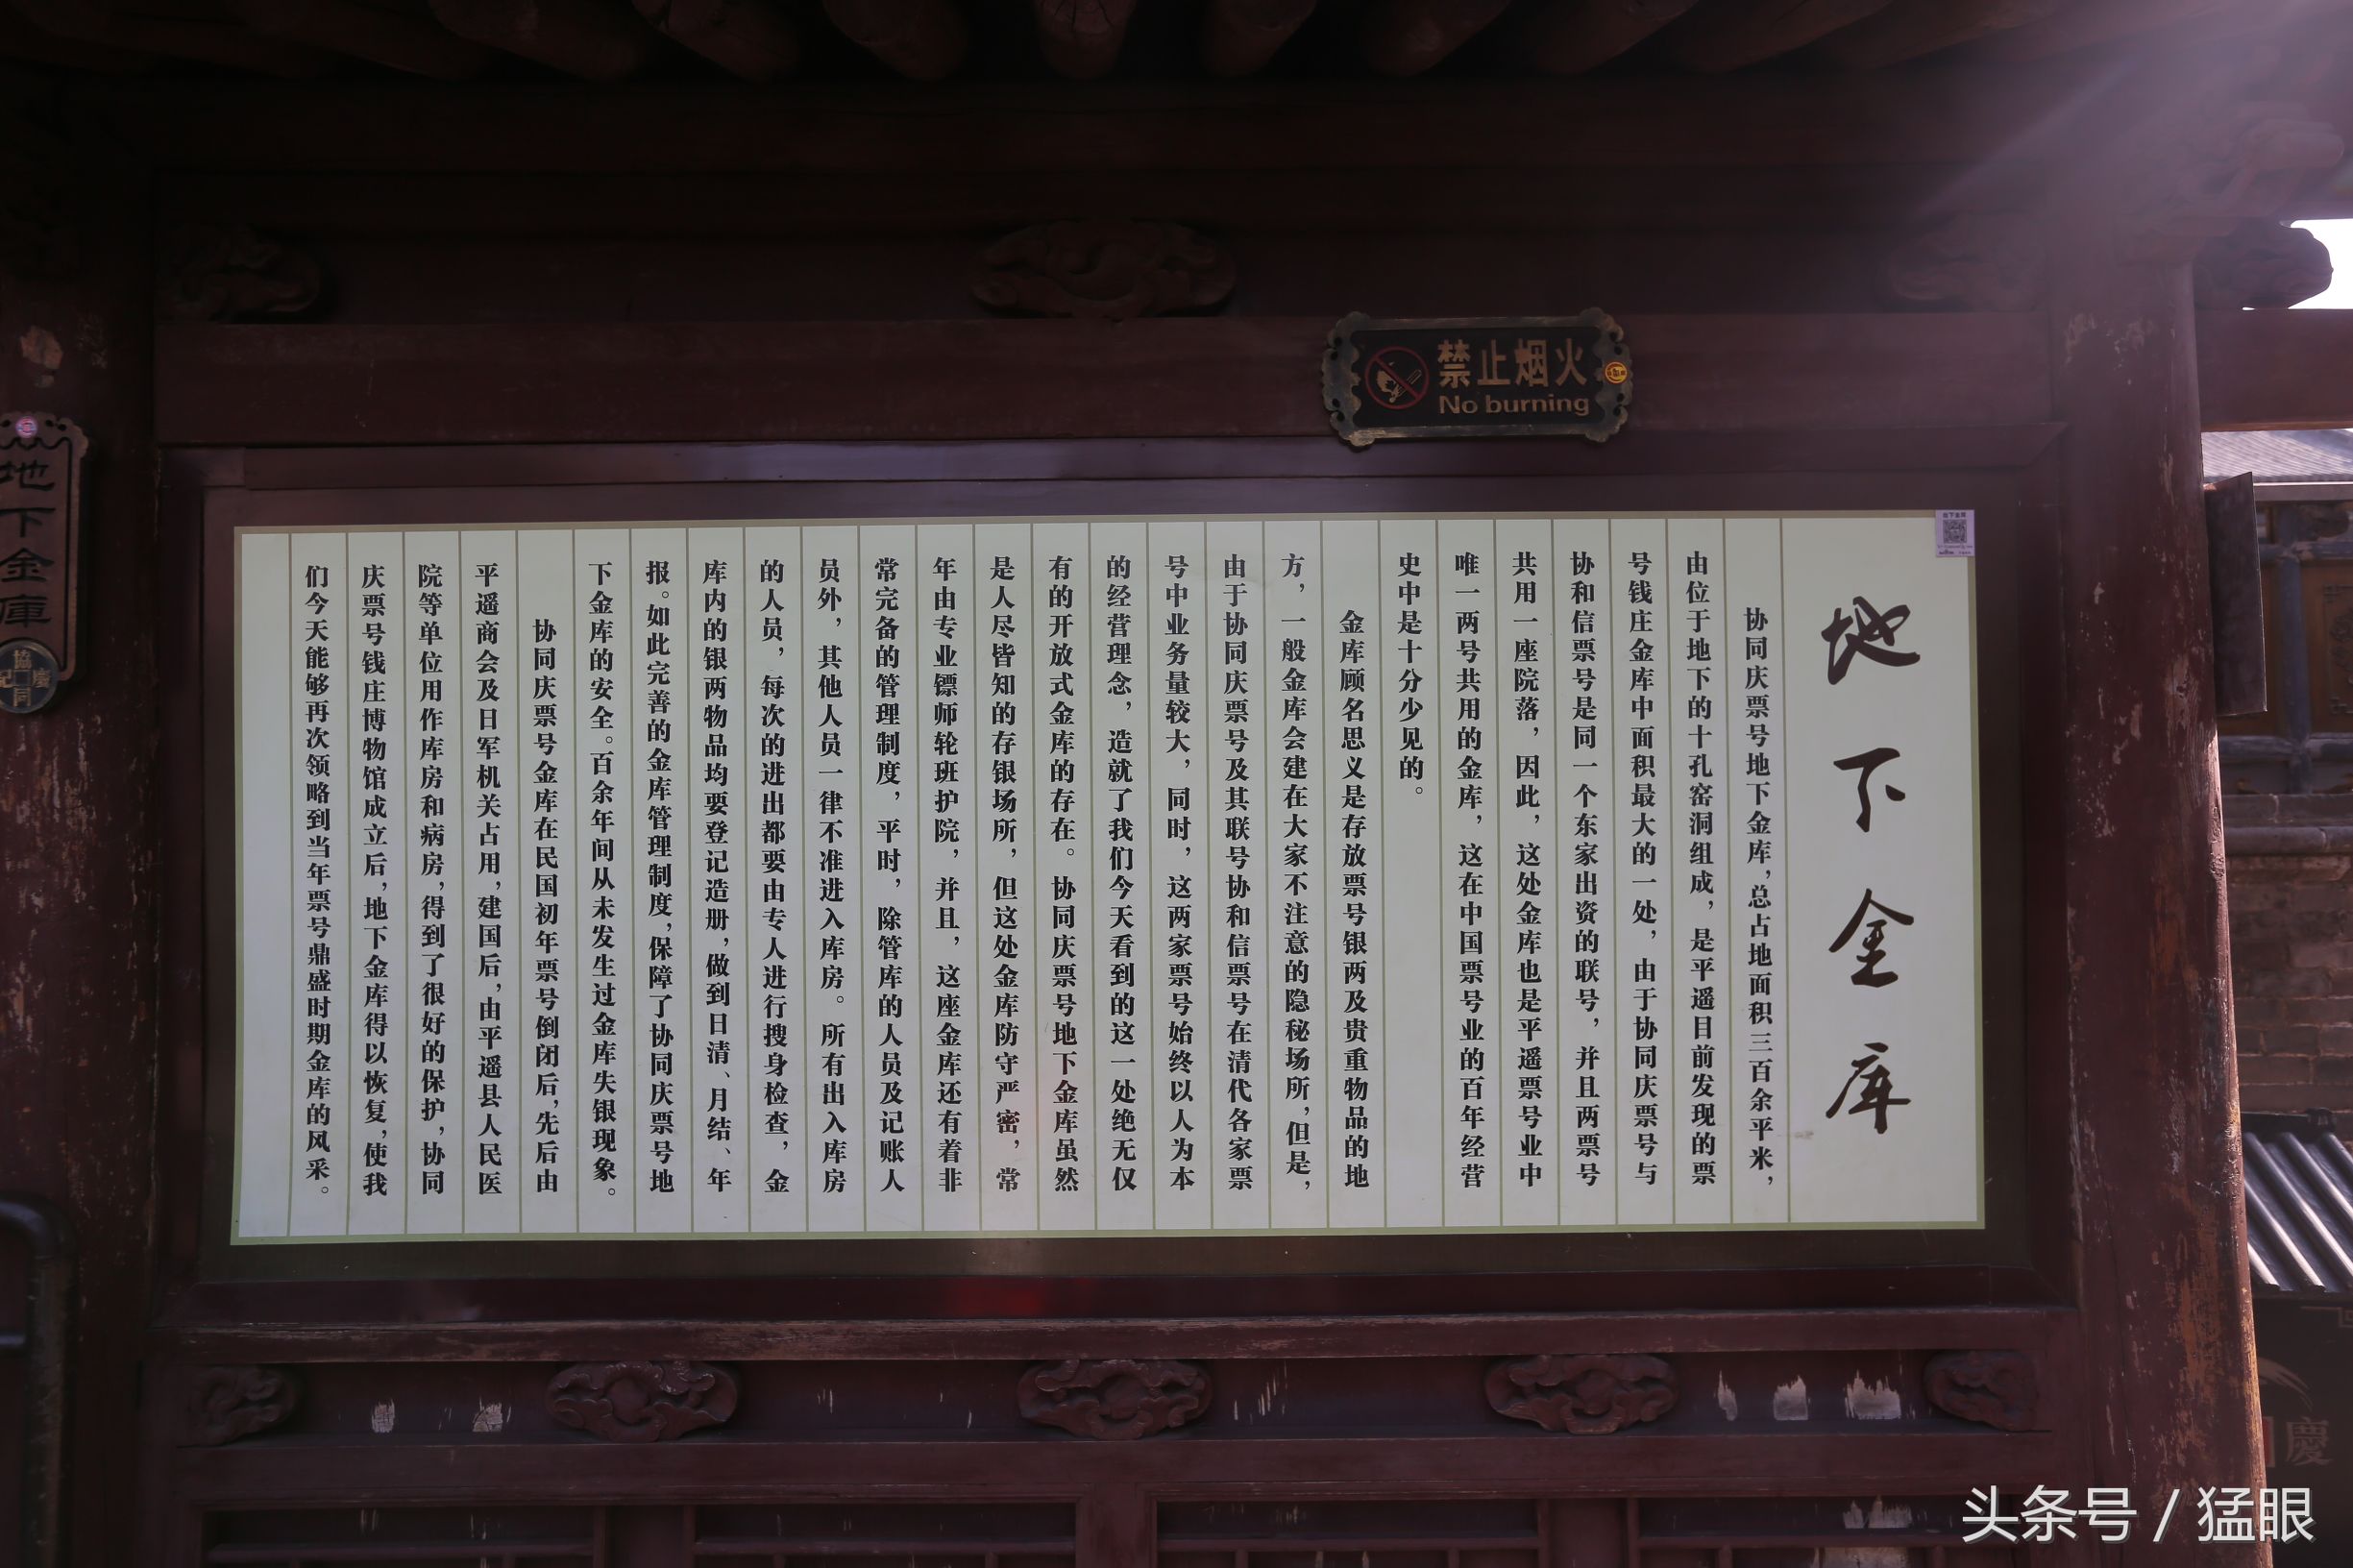 禁止烟火
No burning
地下金库
协同庆票号地下金库，总占地面积三百余平米，
由位于地下的十孔窑洞组成，是平遥目前发现的票
号钱庄金库中面积最大的一处，由于协同庆票号与
协和信票号是同一个东家出资的联号，并且两票号
共用一座院落，因此，这处金库也是平遥票号业中
唯一两号共用的金库，这在中国票号业的百年经营
史中是十分少见的。
金库顾名思义是存放票号银两及贵重物品的地
方，一般金库会建在大家不注意的隐秘场所，但是，
由于协同庆票号及其联号协和信票号在清代各家票
号中业务量较大，同时，这两家票号始终以人为本
的经营理念，造就了我们今天看到的这一处绝无仅
有的开放式金库的存在。协同庆票号地下金库虽然
是人尽皆知的存银场所，但这处金库防守严密，常
年由专业镖师轮班护院，并且，这座金库还有着非
常完备的管理制度，平时，除管库的人员及记账人
员外，其他人员一律不准进入库房。所有出入库房
的人员，每次的进出都要由专人进行搜身检查，金
库内的银两物品均要登记造册，做到日清、月结、年
报。如此完善的金库管理制度，保障了协同庆票号地
下金库的安全。百余年间从未发生过金库失银现象。
协同庆票号金库在民国初年票号倒闭后，先后由
平遥商会及日军机关占用，建国后，由平遥县人民医
院等单位用作库房和病房，得到了很好的保护，协同
庆票号钱庄博物馆成立后，地下金库得以恢复，使我
们今天能够再次领略到当年票号鼎盛时期金库的风采。
地下金庫
協同慶記
慶
头条号 / 猛眼